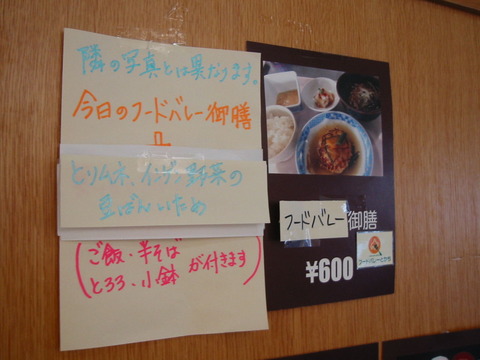 隣の写真とは異なります。
今日のフードバレー御膳
とりムネ、インゲン野菜の
豆ばんいため
(ご飯・半そば
とろろ・小鉢 が付きます)
フードバレー御膳
¥600
フードバレーとかち